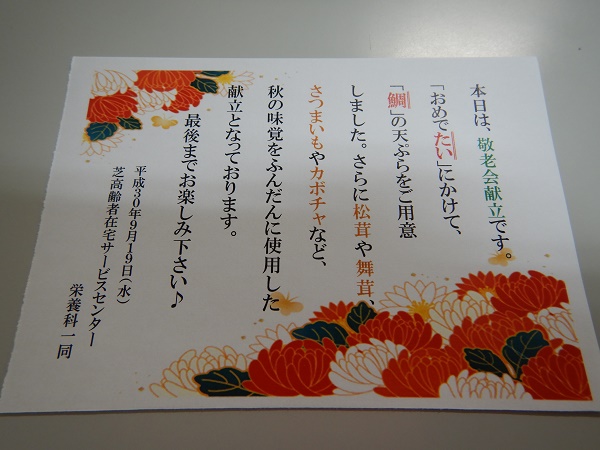 本日は、敬老会献立です。
「おめでたい」にかけて、
「鯛」の天ぷらをご用意
しました。さらに松茸や舞茸、
さつまいもやカボチャなど、
秋の味覚をふんだんに使用した
献立となっております。
最後までお楽しみ下さい♪
平成30年9月19日(水)
芝高齢者在宅サービスセンター
栄養科一同